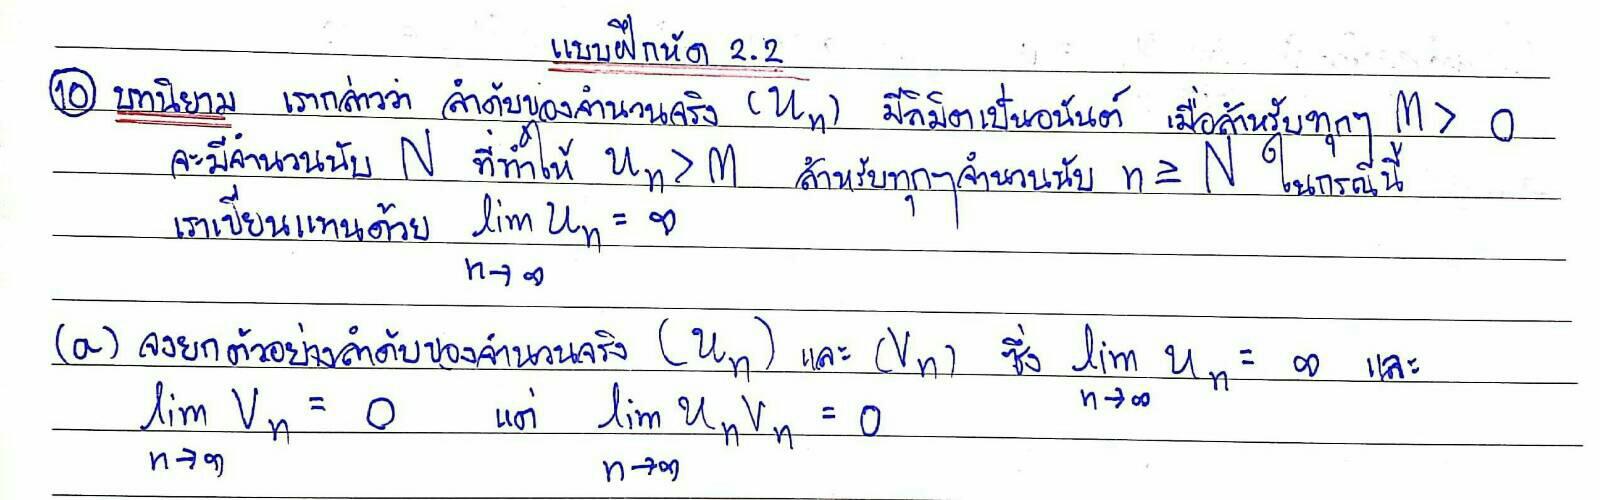 แบบฝึกหัด 2.2
(10) บทนิยาม เรากล่าวว่า ลำดับของจำนวนจริง (uₙ) มีลิมิตเป็นอนันต์ เมื่อสำหรับทุกๆ M > 0
จะมีจำนวนนับ N ที่ทำให้ uₙ > M สำหรับทุกๆจำนวนนับ n ≥ N ในกรณีนี้
เราเขียนแทนด้วย lim uₙ = ∞
n→∞
(a) จงยกตัวอย่างลำดับของจำนวนจริง (uₙ) และ (vₙ) ซึ่ง lim uₙ = ∞ และ
n→∞
lim vₙ = 0 แต่ lim uₙvₙ = 0
n→∞ n→∞